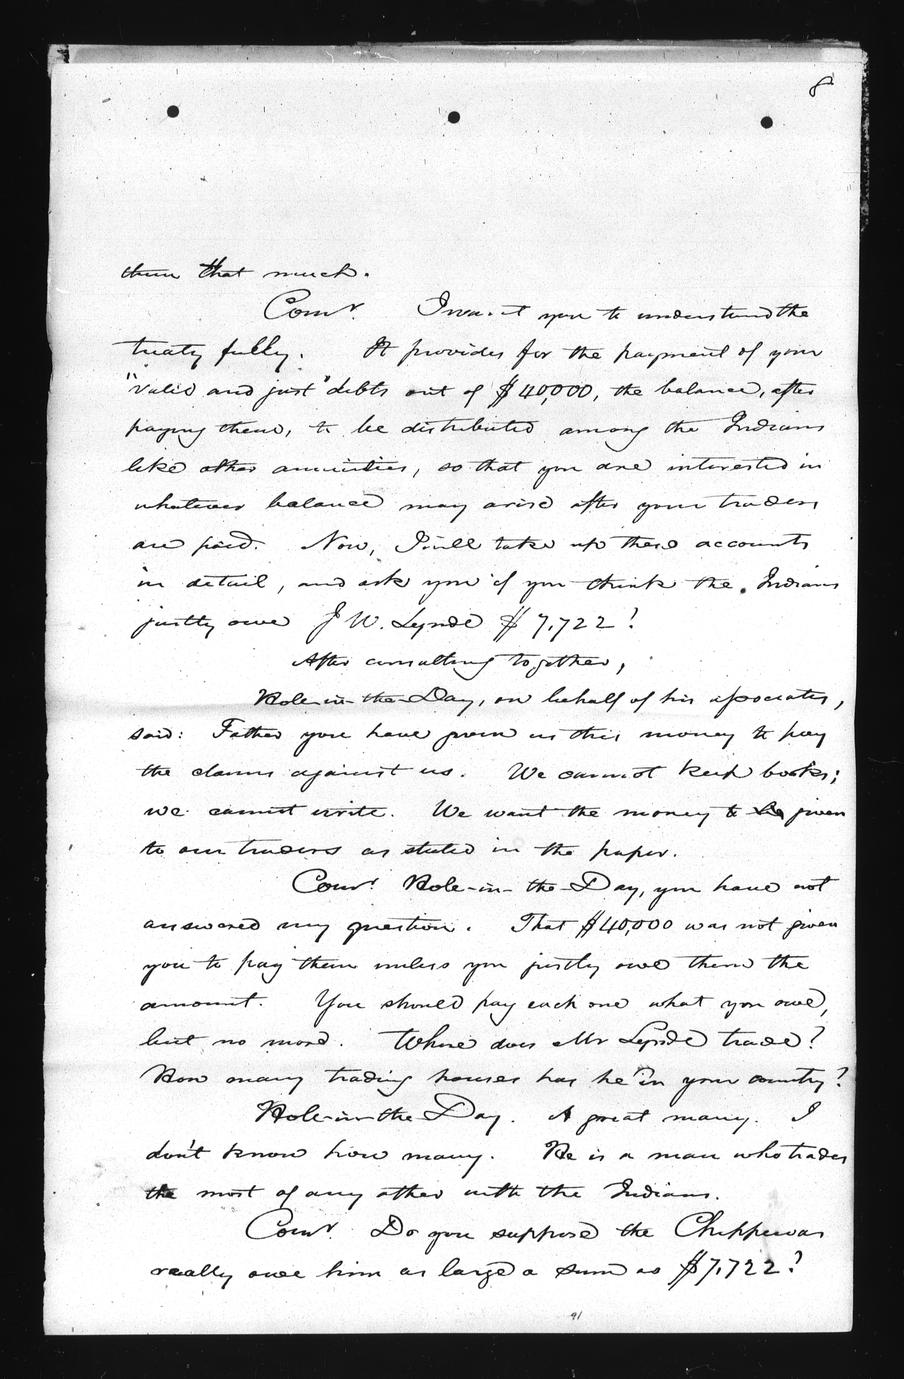 8
them that much.
Comr. I want you to understand the
treaty fully. It provides for the payment of your
"valid and just" debts out of $40,000, the balance, after
paying them, to be distributed among the Indians
like other annuities, so that you are interested in
whatever balance may arise after your traders
are paid. Now, I will take up these accounts
in detail, and ask you if you think the Indians
justly owe J W. Lynde $7,722?
After consulting together,
Hole-in-the-Day, on behalf of his associates,
said: Father you have given us this money to pay
the claims against us. We cannot keep books;
we cannot write. We want the money to be given
to our traders as stated in the paper.
Comr. Hole-in-the-Day, you have not
answered my question. That $40,000 was not given
you to pay them unless you justly owe them the
amount. You should pay each one what you owe,
but no more. Where does Mr Lynde trade?
How many trading houses has he in your country?
Hole-in-the Day. A great many. I
don't know how many. He is a man who trades
the most of any other with the Indians.
Comr. Do you suppose the Chippewas
really owe him as large a sum as $7,722?
91